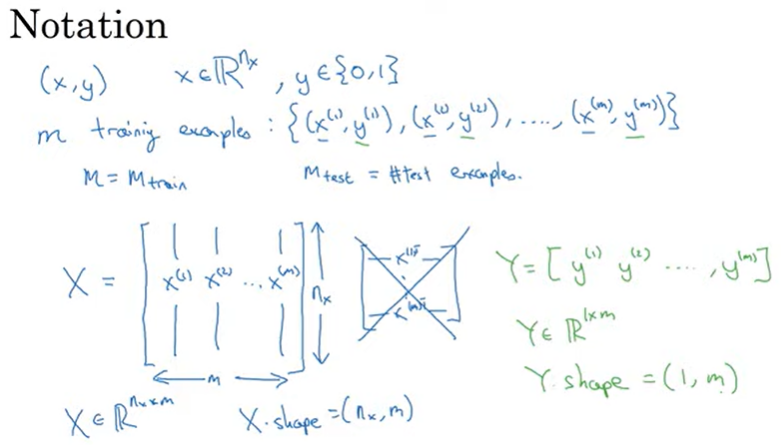 Notation
(x,y) x∈ℝ^{n_x}, y∈{0,1}
m training examples : {(x^{(1)}, y^{(1)}), (x^{(2)}, y^{(2)}), ...., (x^{(m)}, y^{(m)})}
M = M_{train} M_{test} = #test examples.
X = [x^{(1)} x^{(2)} ... x^{(m)}] n_x
m
x^{(1)T}
x^{(m)T}
Y = [y^{(1)} y^{(2)} ...., y^{(m)}]
Y∈ ℝ^{1×m}
Y.shape = (1, m)
X ∈ ℝ^{n_x×m} X.shape = (n_x, m)